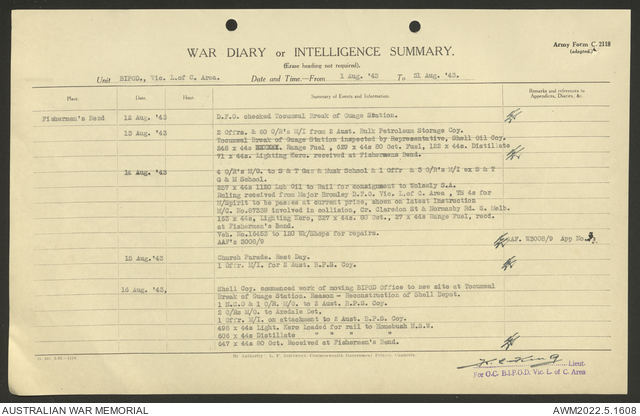 Army Form C. 2118
(adapted)
WAR DIARY or INTELLIGENCE SUMMARY.
(Erase heading not required).
Unit BIPOD., Vic. L.of C. Area. Date and Time.—From 1 Aug. '43 To 31 Aug. '43.
Place. Date. Hour. Summary of Events and Information. Remarks and references to Appendices, Diaries, &c.
Fishermen's Bend 12 Aug. '43 D.P.O. checked Tocumwal Break of Guage Station.
13 Aug. '43 2 Offrs. & 60 O/R's M/I from 2 Aust. Bulk Petroleum Storage Coy.
Tocumwal Break of Guage Station inspected by Representative, Shell Oil Coy.
548 x 44s Range Fuel, 629 x 44s 80 Oct. Fuel, 122 x 44s. Distillate
71 x 44s. Lighting Kero. received at Fishermens Bend.
14 Aug. '43 4 O/R's M/O. to S & T Gas & Musk School & 1 Offr & 3 O/R's M/I ex S & T
G & M School.
257 x 44s 1120 Lub Oil to Rail for consignment to S.A.
Ruling received from Major Bromley D.P.O. Vic. L.of C. Area, YS 4s for
M/Spirit to be passes at current price, shown on latest Instruction
M/C. No. 87338 involved in collision, Cr. Claredon St & Normanby Rd. S. Melb.
163 x 44s, Lighting Kero, 327 x 44s. 80 Oct., 27 x 44s Range Fuel, recd.
at Fishermen's Bend.
Veh. No. 16453 to 120 Wk/Shops for repairs.
AAF's 3008/9 AAF. W3008/9 App No. 3
15 Aug.'43 Church Parade. Rest Day.
1 Offr. M/I. for 2 Aust. B.P.S. Coy.
16 Aug. '43, Shell Coy. commenced work of moving BIPOD Office to new site at Tocumwal
Break of Guage Station. Reason - Reconstruction of Shell Depot.
1 N.C.O & 1 O/R. M/O. to 2 Aust. B.P.S. Coy.
2 O/Rs M/O. to Axedale Det.
1 Offr. M/I. on attachment to 2 Aust. B.P.S. Coy.
496 x 44s Light. Kero Loaded for rail to Homebush N.S.W.
606 x 44s Distillate " " " "
547 x 44s 80 Oct. Received at Fishermen's Bend.
Lieut.
For O.C. B.I.P.O.D. Vic L of C. Area
AUSTRALIAN WAR MEMORIAL
AWM2022.5.1608